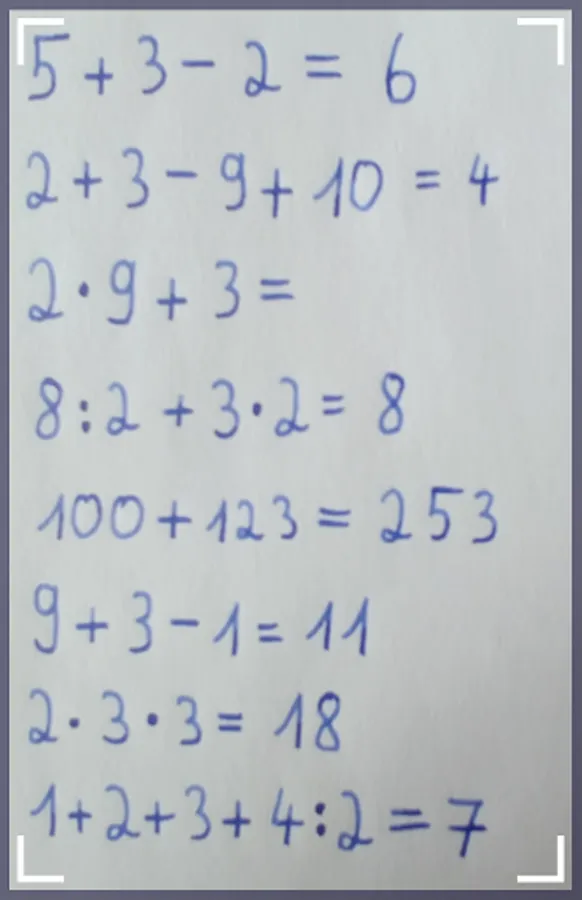 5 + 3 - 2 = 6
2 + 3 - 9 + 10 = 4
2 · 9 + 3 =
8 : 2 + 3 · 2 = 8
100 + 123 = 253
9 + 3 - 1 = 11
2 · 3 · 3 = 18
1 + 2 + 3 + 4 : 2 = 7